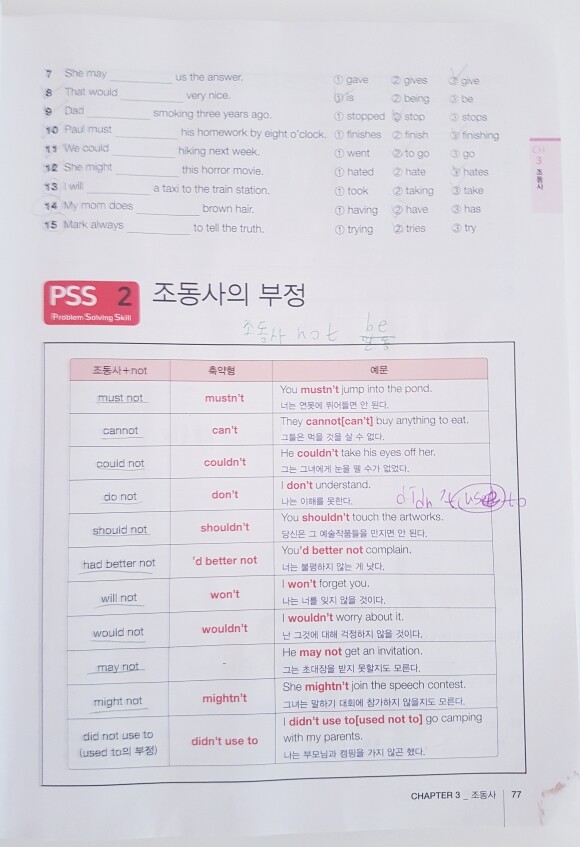 7 She may ________ us the answer. ① gave ② gives ③ give
8 That would ________ very nice. ① is ② being ③ be
9 Dad ________ smoking three years ago. ① stopped ② stop ③ stops
10 Paul must ________ his homework by eight o'clock. ① finishes ② finish ③ finishing
11 We could ________ hiking next week. ① went ② to go ③ go
12 She might ________ this horror movie. ① hated ② hate ③ hates
13 I will ________ a taxi to the train station. ① took ② taking ③ take
14 My mom does ________ brown hair. ① having ② have ③ has
15 Mark always ________ to tell the truth. ① trying ② tries ③ try
CH
3
조동사
PSS 2 조동사의 부정
Problem Solving Skill
조동사 not
조동사+not 축약형 예문
must not mustn't You mustn't jump into the pond.
너는 연못에 뛰어들면 안 된다.
cannot can't They cannot[can't] buy anything to eat.
그들은 먹을 것을 살 수 없다.
could not couldn't He couldn't take his eyes off her.
그는 그녀에게 눈을 뗄 수가 없었다.
do not don't I don't understand.
나는 이해를 못한다.
didn't use to
should not shouldn't You shouldn't touch the artworks.
당신은 그 예술작품들을 만지면 안 된다.
had better not 'd better not You'd better not complain.
너는 불평하지 않는 게 낫다.
will not won't I won't forget you.
나는 너를 잊지 않을 것이다.
would not wouldn't I wouldn't worry about it.
난 그것에 대해 걱정하지 않을 것이다.
may not - He may not get an invitation.
그는 초대장을 받지 못할지도 모른다.
might not mightn't She mightn't join the speech contest.
그녀는 말하기 대회에 참가하지 않을지도 모른다.
did not use to
(used to의 부정) didn't use to I didn't use to[used not to] go camping
with my parents.
나는 부모님과 캠핑을 가지 않곤 했다.
CHAPTER 3 _ 조동사 77